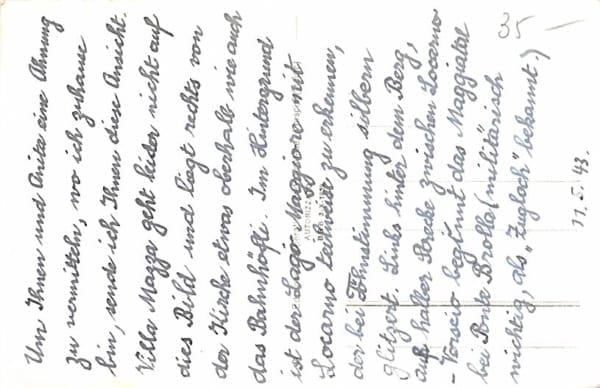 Um Ihnen und Anita eine Ahnung
zu vermitteln, wo ich zuhause
bin, sende ich Ihnen diese Ansicht.
Villa Magga geht leider nicht auf
dies Bild und liegt rechts von
der Kirche etwas oberhalb wie auch
das Bahnhöfli. Im Hintergrund
ist der Lago Maggiore mit
Locarno teilweise zu erkennen,
der bei Föhnstimmung silbern
glitzert. Links hinter dem Berg,
auf halber Strecke zwischen Locarno
- Verscio beginnt das Maggiatal
bei Ponte Brolla (militärisch
wichtig, als „Zugloch" bekannt.)
11.5.43.
35